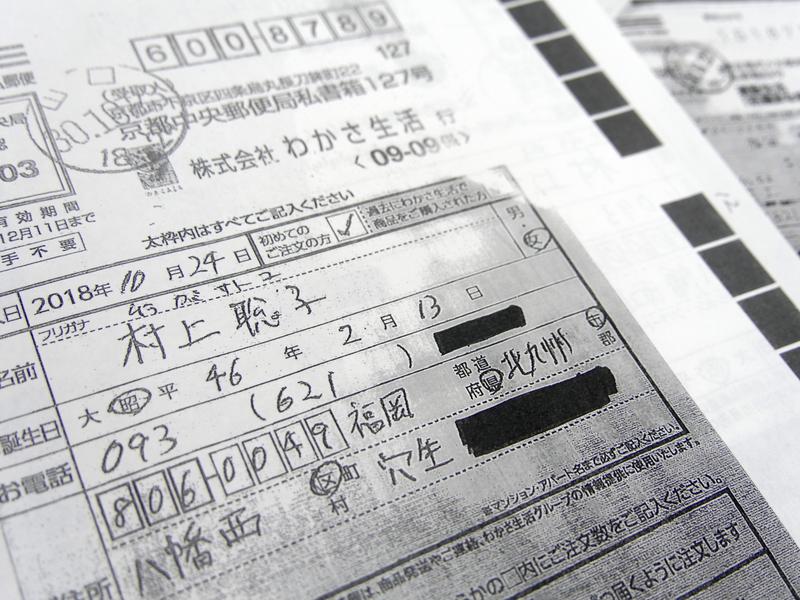 600 8789
127
(受取人)
京都市下京区四条烏丸東入長刀鉾町22
京都中央郵便局私書箱127号
株式会社 わかさ生活 行
〈09-09㊕〉
郵便
03
有効期間
12月11日まで
手不要
太枠内はすべてご記入ください
初めてのご注文の方 ✓ 過去にわかさ生活で商品をご購入された方
2018年10月24日
男・女
フリガナ
名前 村上 聡子
誕生日 大 昭 平 46年 2月 13日
お電話 093 (621 )
806-0049 福岡 都道府県 北九州 市郡
八幡西 区町村 穴生
住所
※マンション・アパート名まで必ずご記入ください。
商品発送やご連絡、わかさ生活グループの情報提供に使用いたします。
らかの□内にご注文数をご記入ください。
つ届くように注文します